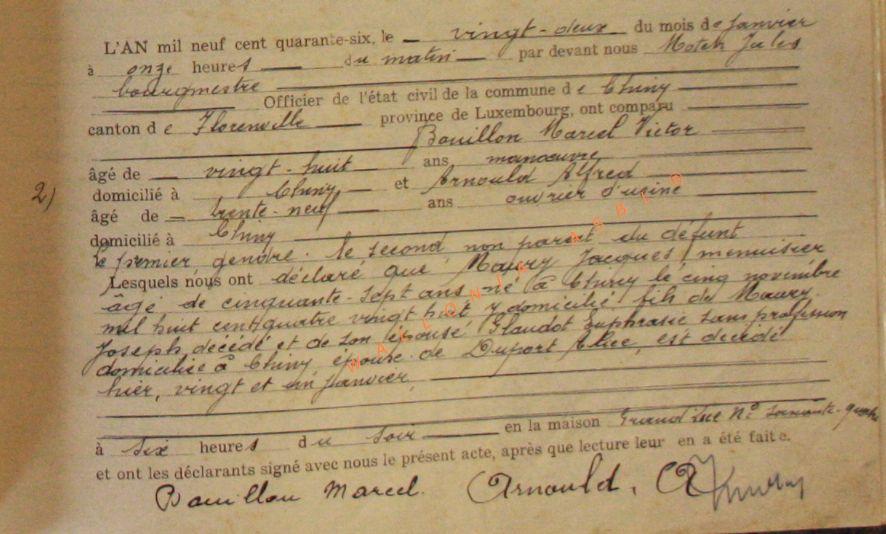 L'AN mil neuf cent quarante-six, le vingt-deux du mois de janvier
à onze heures du matin par devant nous Jules
bourgmestre
Officier de l'état civil de la commune de Chiny
canton de Florenville province de Luxembourg, ont comparu
Bouillon Marcel Victor
âgé de vingt-huit ans manœuvre
domicilié à Chiny et Arnould Alfred
2) âgé de trente-neuf ans ouvrier d'usine
domicilié à Chiny
le premier, gendre, le second non parent du défunt
Lesquels nous ont déclaré que Maury Jacques, menuisier
âgé de cinquante-sept ans né à Chiny le cinq novembre
mil huit cent quatre vingt huit y domicilié fils de Maury
Joseph décédé et de son épouse Glaudot Euphrasie sans profession
domiciliée à Chiny époux de Duport est décédé
hier, vingt et un janvier,
à six heures du soir en la maison Grand'rue N° soixante-quatre
et ont les déclarants signé avec nous le présent acte, après que lecture leur en a été faite.
Bouillon Marcel. Arnould, A